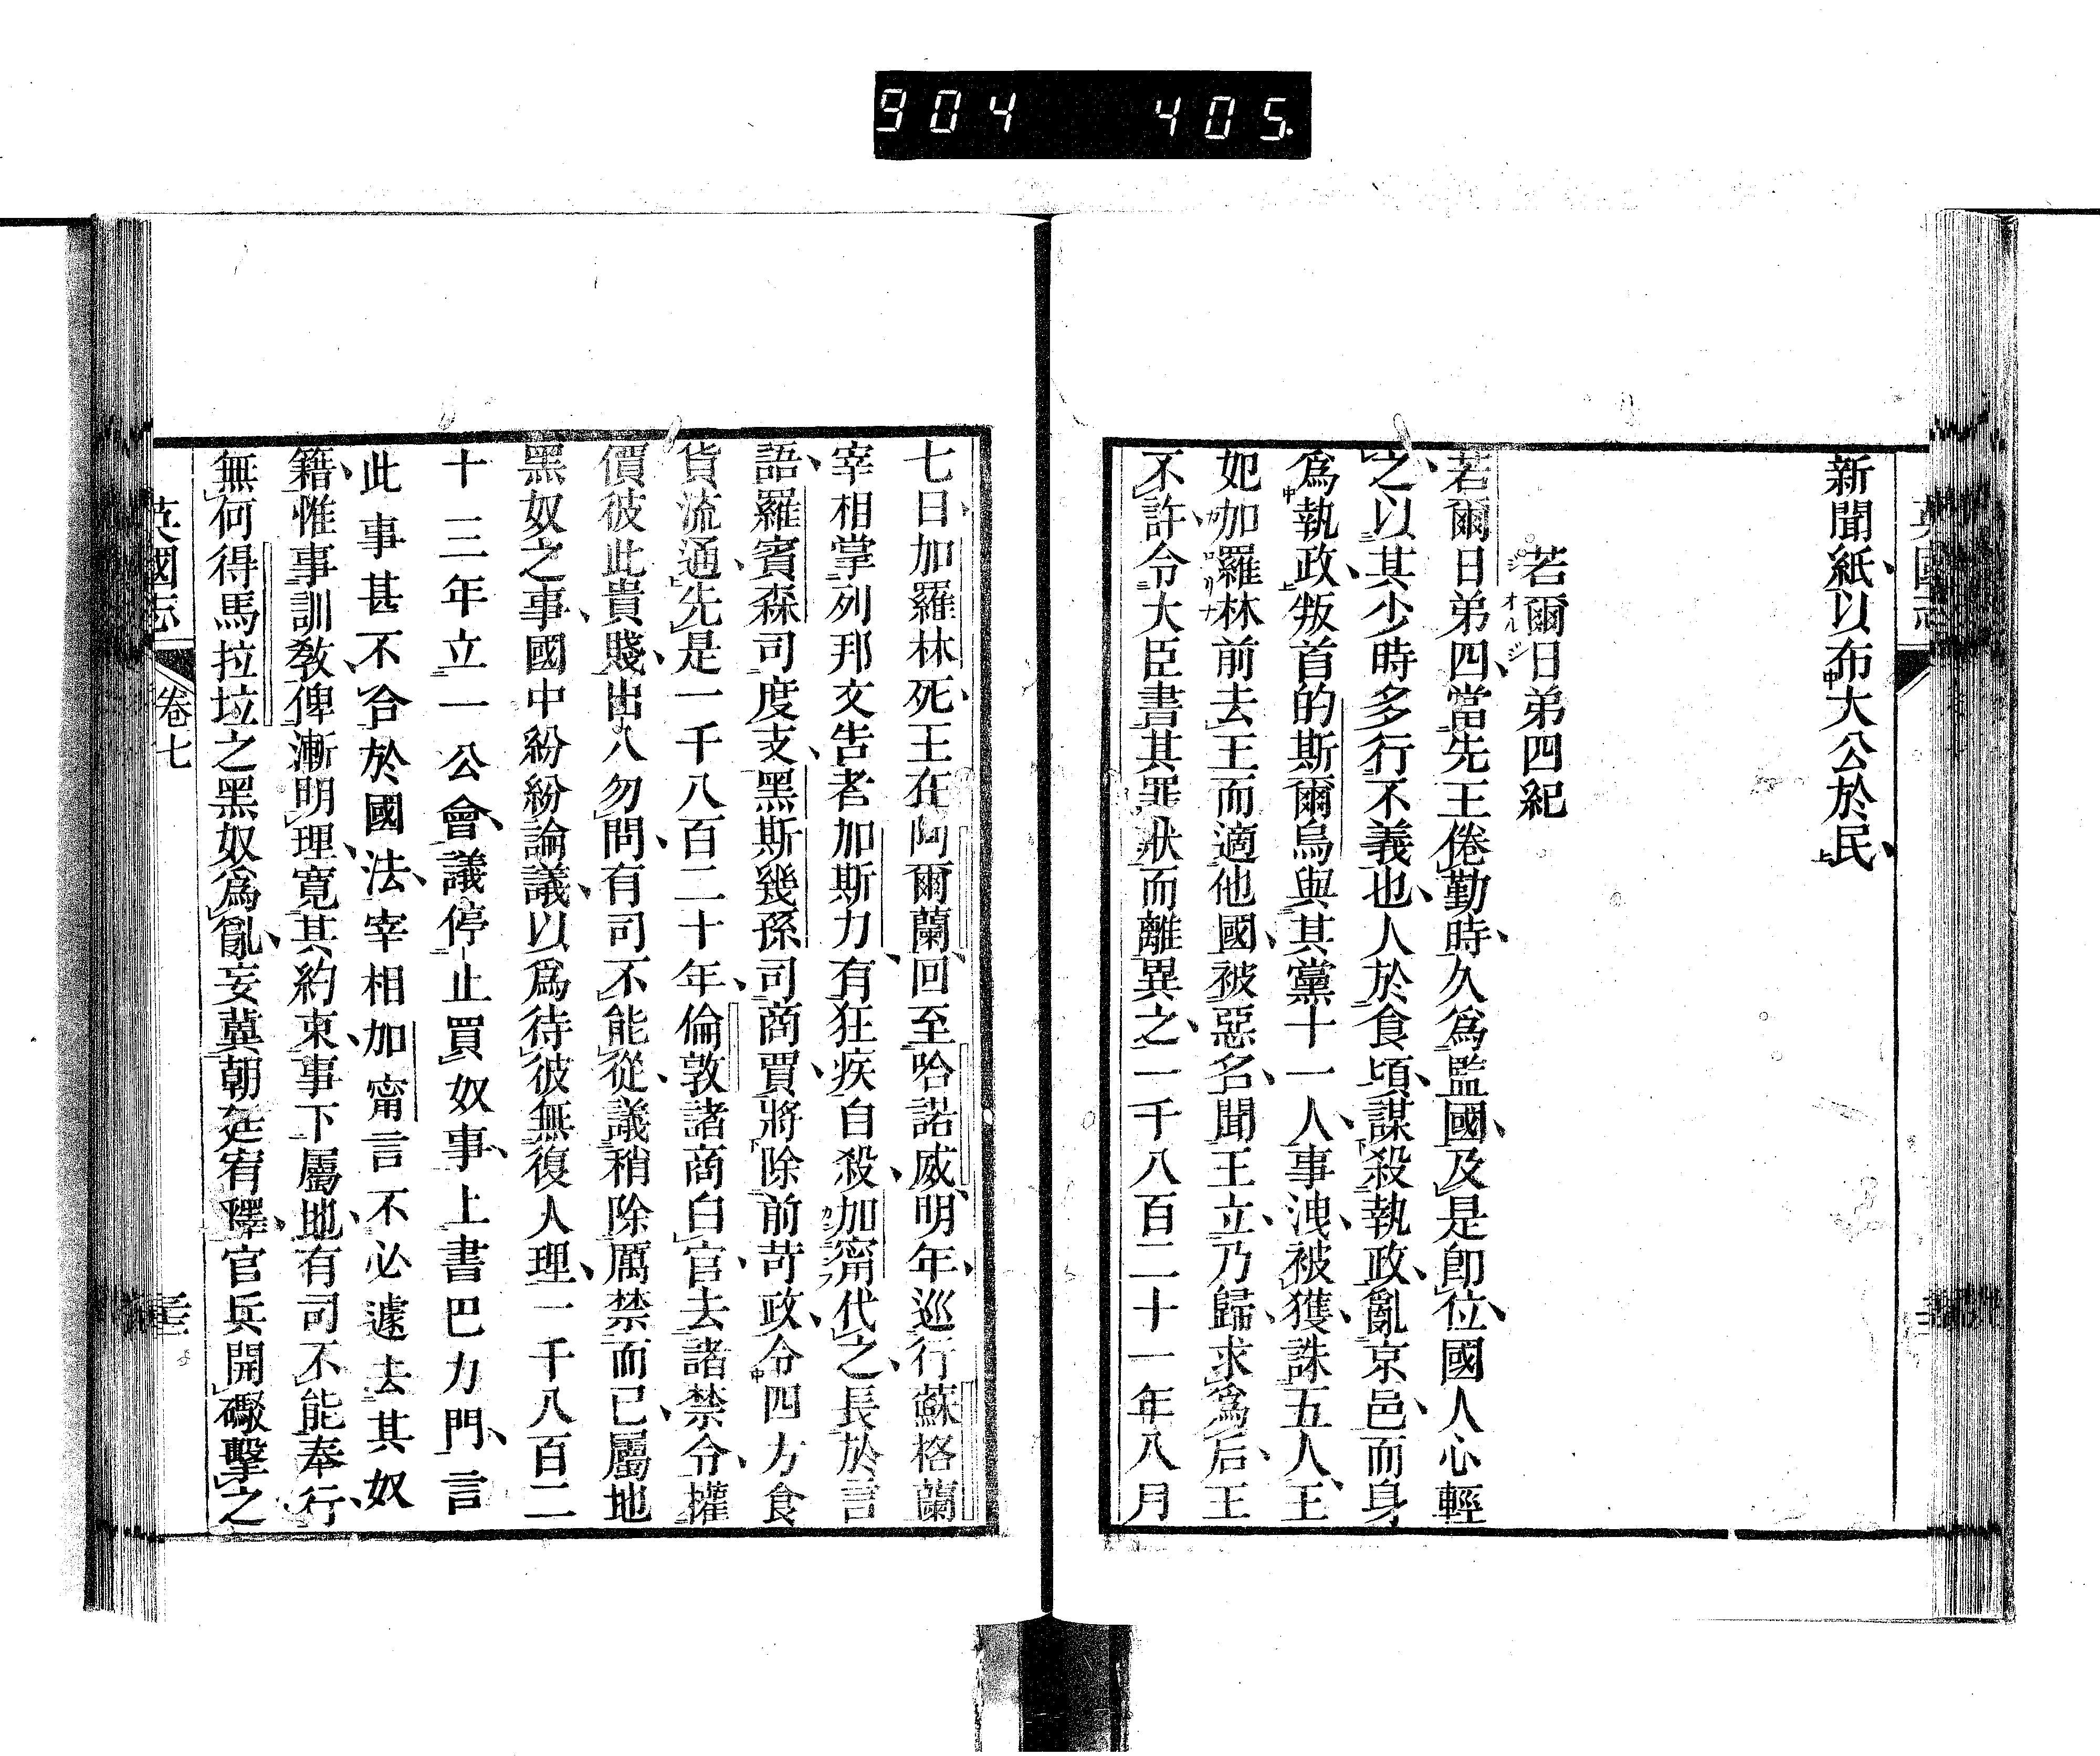 904 405.
新聞紙以布大公於民
若爾日弟四紀
若爾日弟四當先王倦勤時久爲監國及是卽位國人心輕
之以其少時多行不義也人於食頃謀殺執政亂京邑而身
爲執政叛首的斯爾烏與其黨十一人事洩被獲誅五人王
妃加羅林前去王而適他國被惡名聞王立乃歸求爲后王
不許令大臣書其罪狀而離異之一千八百二十一年八月
七日加羅林死王在阿爾蘭回至哈諾威明年巡行蘇格蘭
宰相掌列邦文告者加斯力有狂疾自殺加甯代之長於言
語羅賓森司度支黑斯幾孫司商賈將除前苛政令四方食
貨流通先是一千八百二十年倫敦諸商白官去諸禁令搉
價彼此貴賤出入勿問有司不能從議稍除厲禁而已屬地
黑奴之事國中紛紛論議以爲待彼無復人理一千八百二
十三年立一公會議停止買奴事上書巴力門言
此事甚不合於國法宰相加甯言不必遽去其奴
籍惟事訓教俾漸明理寬其約束事下屬地有司不能奉行
無何得馬拉垃之黑奴爲亂妄冀朝廷宥釋官兵開礮擊之
英國志
卷七